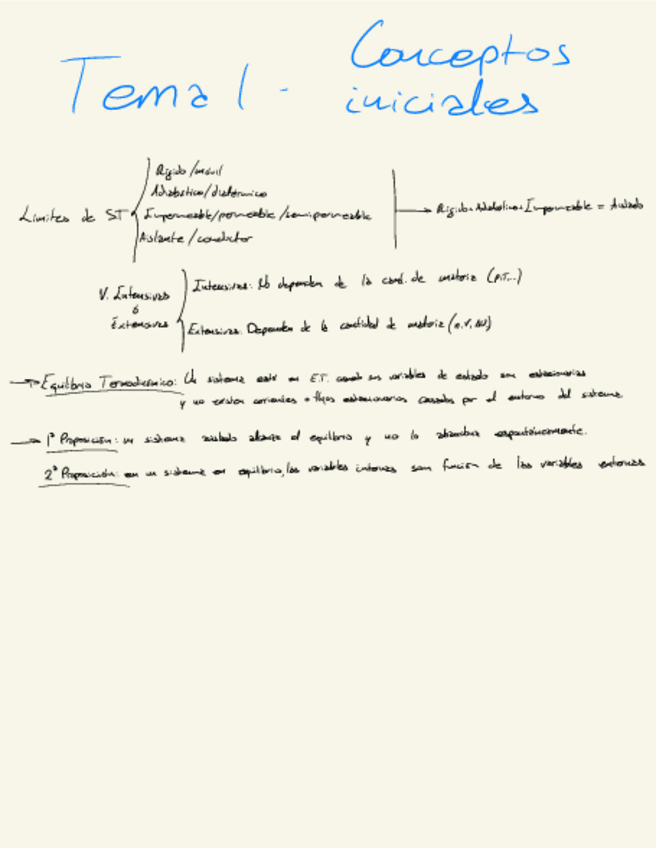 Tema 1 - Conceptos iniciales
Límites de ST
Rígido / móvil
Adiabático / diatérmico
Impermeable / permeable / semipermeable
Aislante / conductor
Rígido + Adiabático + Impermeable = Aislado
V. Intensivas
ó
Extensivas
Intensivas: No dependen de la cant. de materia (p,T...)
Extensivas: Dependen de la cantidad de materia (n, V,
→ Equilibrio Termodinámico: Un sistema está en E.T. cuando sus variables de estado son estacionarias
y no existen corrientes o flujos estacionarios causados por el entorno del sistema.
→ 1ª Proposición: un sistema aislado alcanza el equilibrio y no lo abandona espontáneamente.
2ª Proposición: en un sistema en equilibrio, las variables internas son función de las variables externas